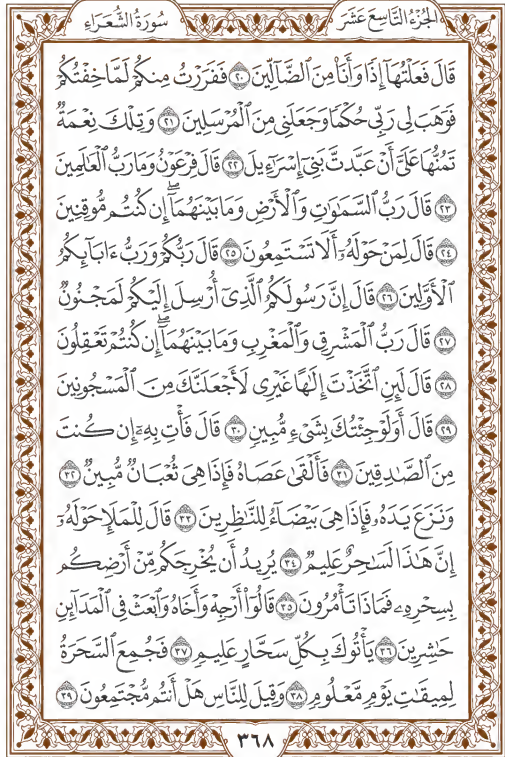 الجُزْءُ التَّاسِعَ عَشَرَ سُورَةُ الشُّعَرَاءِ
قَالَ فَعَلْتُهَآ إِذًا وَأَنَا۠ مِنَ ٱلضَّآلِّينَ ٢٠ فَفَرَرْتُ مِنكُمْ لَمَّا خِفْتُكُمْ
فَوَهَبَ لِى رَبِّى حُكْمًا وَجَعَلَنِى مِنَ ٱلْمُرْسَلِينَ ٢١ وَتِلْكَ نِعْمَةٌ
تَمُنُّهَا عَلَىَّ أَنْ عَبَّدتَّ بَنِىٓ إِسْرَٰٓءِيلَ ٢٢ قَالَ فِرْعَوْنُ وَمَا رَبُّ ٱلْعَٰلَمِينَ
٢٣ قَالَ رَبُّ ٱلسَّمَٰوَٰتِ وَٱلْأَرْضِ وَمَا بَيْنَهُمَآ ۖ إِن كُنتُم مُّوقِنِينَ
٢٤ قَالَ لِمَنْ حَوْلَهُۥٓ أَلَا تَسْتَمِعُونَ ٢٥ قَالَ رَبُّكُمْ وَرَبُّ ءَابَآئِكُمُ
ٱلْأَوَّلِينَ ٢٦ قَالَ إِنَّ رَسُولَكُمُ ٱلَّذِىٓ أُرْسِلَ إِلَيْكُمْ لَمَجْنُونٌ
٢٧ قَالَ رَبُّ ٱلْمَشْرِقِ وَٱلْمَغْرِبِ وَمَا بَيْنَهُمَآ ۖ إِن كُنتُمْ تَعْقِلُونَ
٢٨ قَالَ لَئِنِ ٱتَّخَذْتَ إِلَٰهًا غَيْرِى لَأَجْعَلَنَّكَ مِنَ ٱلْمَسْجُونِينَ
٢٩ قَالَ أَوَلَوْ جِئْتُكَ بِشَىْءٍ مُّبِينٍ ٣٠ قَالَ فَأْتِ بِهِۦٓ إِن كُنتَ
مِنَ ٱلصَّٰدِقِينَ ٣١ فَأَلْقَىٰ عَصَاهُ فَإِذَا هِىَ ثُعْبَانٌ مُّبِينٌ ٣٢
وَنَزَعَ يَدَهُۥ فَإِذَا هِىَ بَيْضَآءُ لِلنَّٰظِرِينَ ٣٣ قَالَ لِلْمَلَإِ حَوْلَهُۥٓ
إِنَّ هَٰذَا لَسَٰحِرٌ عَلِيمٌ ٣٤ يُرِيدُ أَن يُخْرِجَكُم مِّنْ أَرْضِكُم
بِسِحْرِهِۦ فَمَاذَا تَأْمُرُونَ ٣٥ قَالُوٓا۟ أَرْجِهْ وَأَخَاهُ وَٱبْعَثْ فِى ٱلْمَدَآئِنِ
حَٰشِرِينَ ٣٦ يَأْتُوكَ بِكُلِّ سَحَّارٍ عَلِيمٍ ٣٧ فَجُمِعَ ٱلسَّحَرَةُ
لِمِيقَٰتِ يَوْمٍ مَّعْلُومٍ ٣٨ وَقِيلَ لِلنَّاسِ هَلْ أَنتُم مُّجْتَمِعُونَ ٣٩
٣٦٨